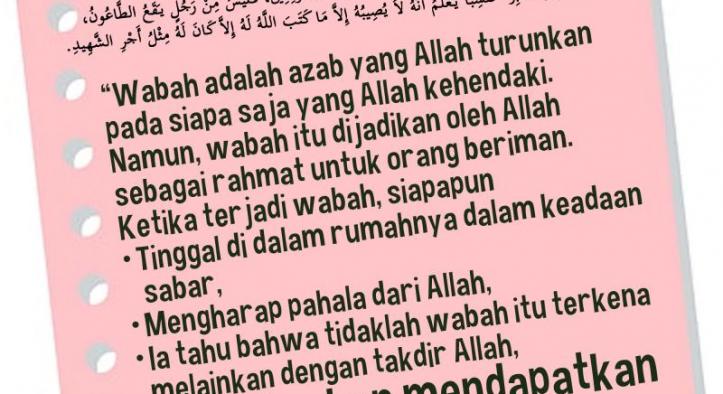 صَابِرًا يَعْلَمُ أَنَّهُ لاَ يُصِيبُهُ إِلاَّ مَا كَتَبَ اللَّهُ لَهُ إِلاَّ كَانَ لَهُ مِثْلُ أَجْرِ الشَّهِيدِ.
فَلَيْسَ مِنْ رَجُلٍ يَقَعُ الطَّاعُونُ،
“Wabah adalah azab yang Allah turunkan
pada siapa saja yang Allah kehendaki.
Namun, wabah itu dijadikan oleh Allah
sebagai rahmat untuk orang beriman.
Ketika terjadi wabah, siapapun
• Tinggal di dalam rumahnya dalam keadaan
sabar,
• Mengharap pahala dari Allah,
• Ia tahu bahwa tidaklah wabah itu terkena
melainkan dengan takdir Allah,
mendapatkan